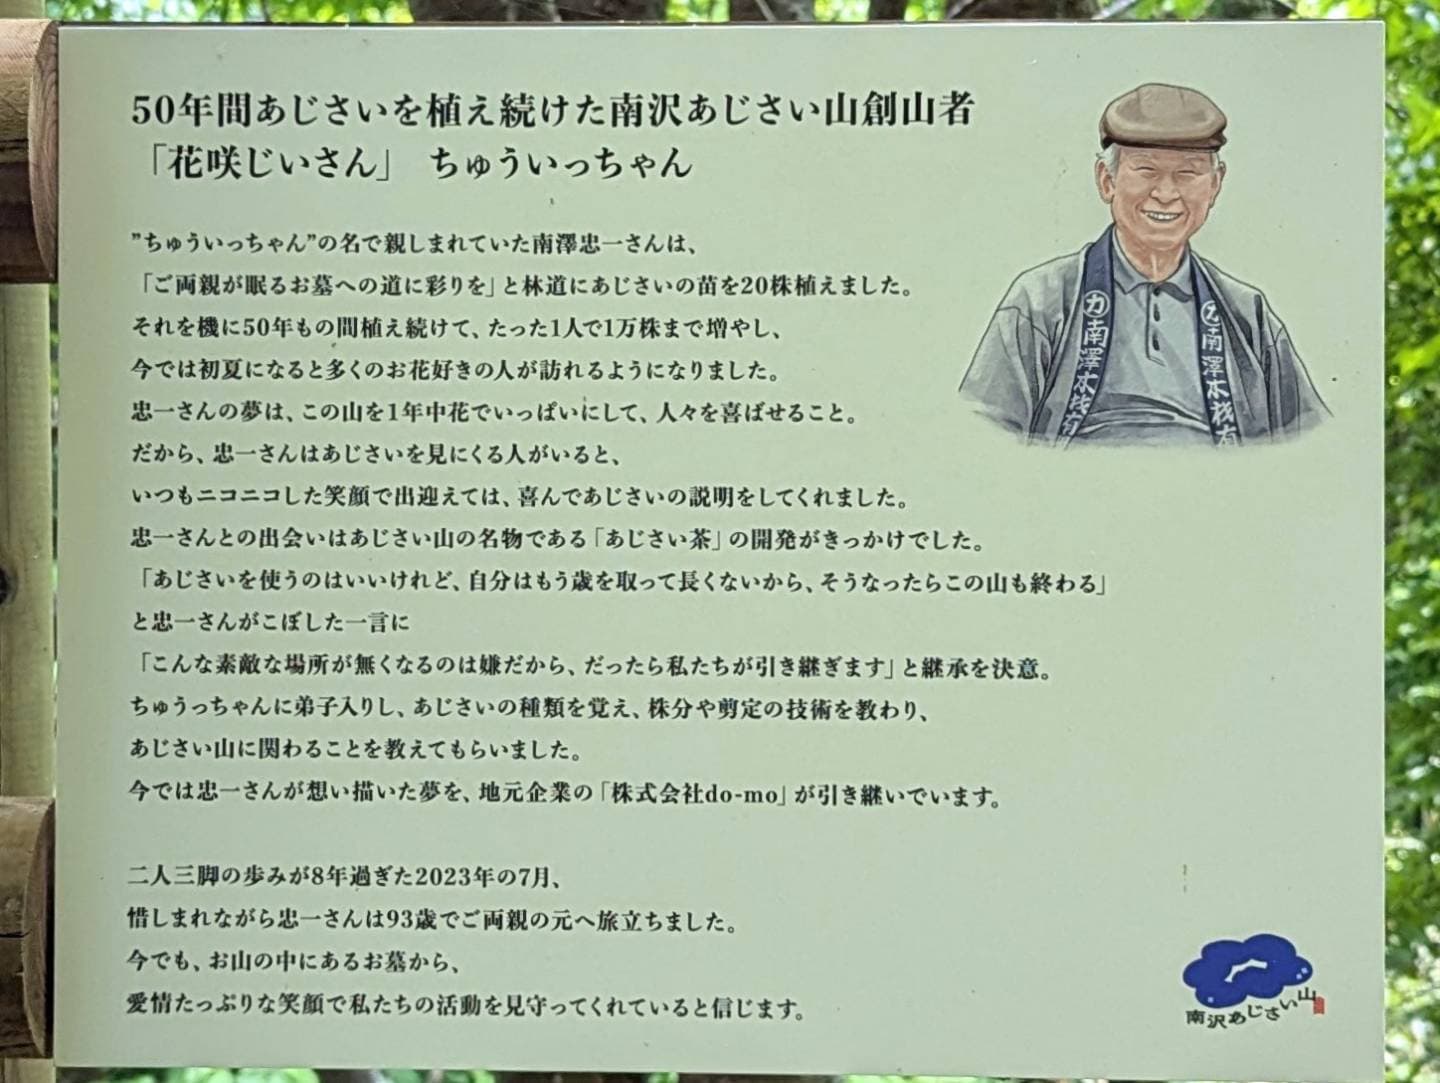 50年間あじさいを植え続けた南沢あじさい山創山者
「花咲じいさん」 ちゅういっちゃん
”ちゅういっちゃん”の名で親しまれていた南澤忠一さんは、
「ご両親が眠るお墓への道に彩りを」と林道にあじさいの苗を20株植えました。
それを機に50年もの間植え続けて、たった1人で1万株まで増やし、
今では初夏になると多くのお花好きの人が訪れるようになりました。
忠一さんの夢は、この山を1年中花でいっぱいにして、人々を喜ばせること。
だから、忠一さんはあじさいを見にくる人がいると、
いつもニコニコした笑顔で出迎えては、喜んであじさいの説明をしてくれました。
忠一さんとの出会いはあじさい山の名物である「あじさい茶」の開発がきっかけでした。
「あじさいを使うのはいいけれど、自分はもう歳を取って長くないから、そうなったらこの山も終わる」
と忠一さんがこぼした一言に
「こんな素敵な場所が無くなるのは嫌だから、だったら私たちが引き継ぎます」と継承を決意。
ちゅうっちゃんに弟子入りし、あじさいの種類を覚え、株分や剪定の技術を教わり、
あじさい山に関わることを教えてもらいました。
今では忠一さんが想い描いた夢を、地元企業の「株式会社do-mo」が引き継いでいます。
二人三脚の歩みが8年過ぎた2023年の7月、
惜しまれながら忠一さんは93歳でご両親の元へ旅立ちました。
今でも、お山の中にあるお墓から、
愛情たっぷりな笑顔で私たちの活動を見守ってくれていると信じます。
カ南澤木材有
乙南澤木材有
南沢あじさい山